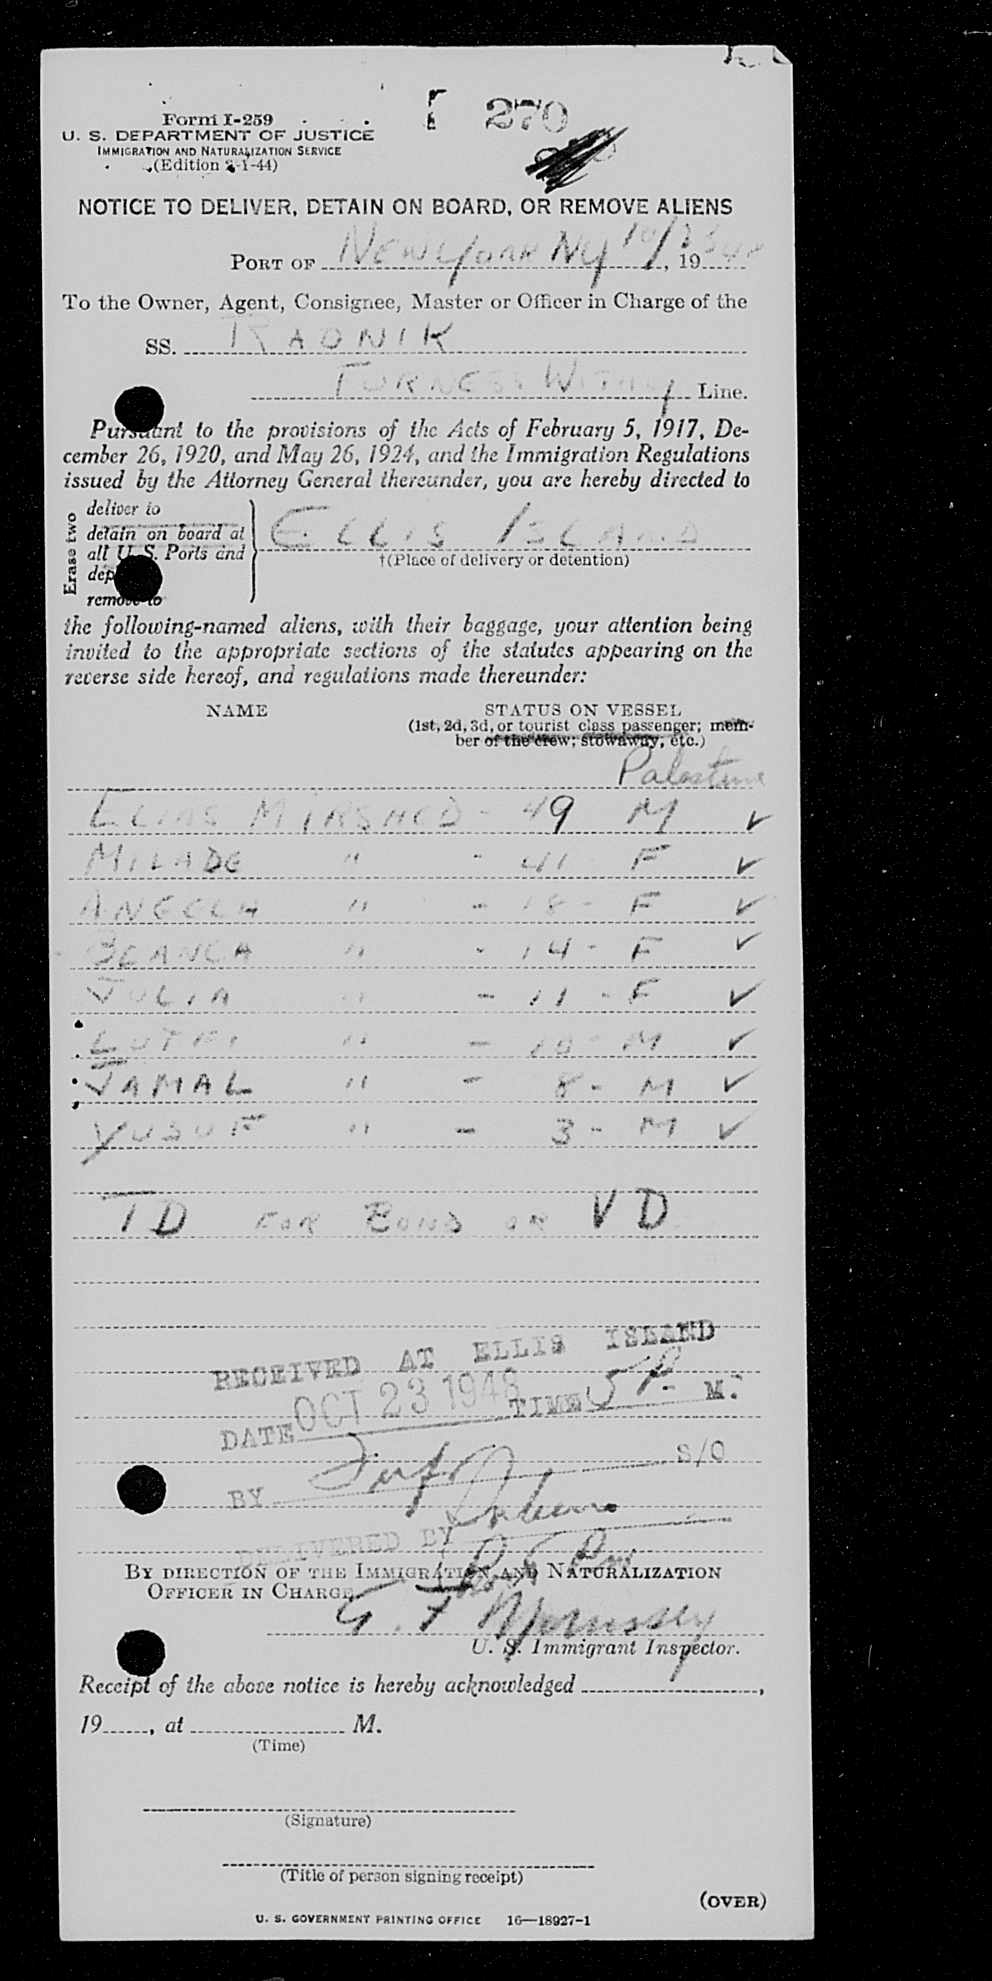 270
Form I-259
U. S. DEPARTMENT OF JUSTICE
IMMIGRATION AND NATURALIZATION SERVICE
(Edition -1-44)
NOTICE TO DELIVER, DETAIN ON BOARD, OR REMOVE ALIENS
PORT OF NEW YORK NY 10/23, 1948
To the Owner, Agent, Consignee, Master or Officer in Charge of the
SS. RADNIK
FURNESS WITHY Line.
Pursuant to the provisions of the Acts of February 5, 1917, De-
cember 26, 1920, and May 26, 1924, and the Immigration Regulations
issued by the Attorney General thereunder, you are hereby directed to
Erase two
deliver to
detain on board at
all U. S. Ports and
dep
remove to
ELLIS ISLAND
†(Place of delivery or detention)
the following-named aliens, with their baggage, your attention being
invited to the appropriate sections of the statutes appearing on the
reverse side hereof, and regulations made thereunder:
NAME STATUS ON VESSEL
(1st, 2d, 3d, or tourist class passenger; mem-
ber of the crew; stowaway, etc.)
Palestine
ELIAS MIRSHED - 49 M ✓
MILADE " - 41 F ✓
ANGELA " - 18 - F ✓
BLANCA " - 14 - F ✓
JULIA " - 11 - F ✓
LUTFI " - 10 - M ✓
JAMAL " - 8 - M ✓
YUSUF " - 3 - M ✓
TD FOR BOND OR VD
RECEIVED AT ELLIS ISLAND
DATE OCT 23 1948 TIME 5 P. M.
BY S/O
DELIVERED BY
BY DIRECTION OF THE IMMIGRATION AND NATURALIZATION
OFFICER IN CHARGE
G. F. Morrissey
U. S. Immigrant Inspector.
Receipt of the above notice is hereby acknowledged ,
19 , at M.
(Time)
(Signature)
(Title of person signing receipt)
(OVER)
U. S. GOVERNMENT PRINTING OFFICE 16—18927-1